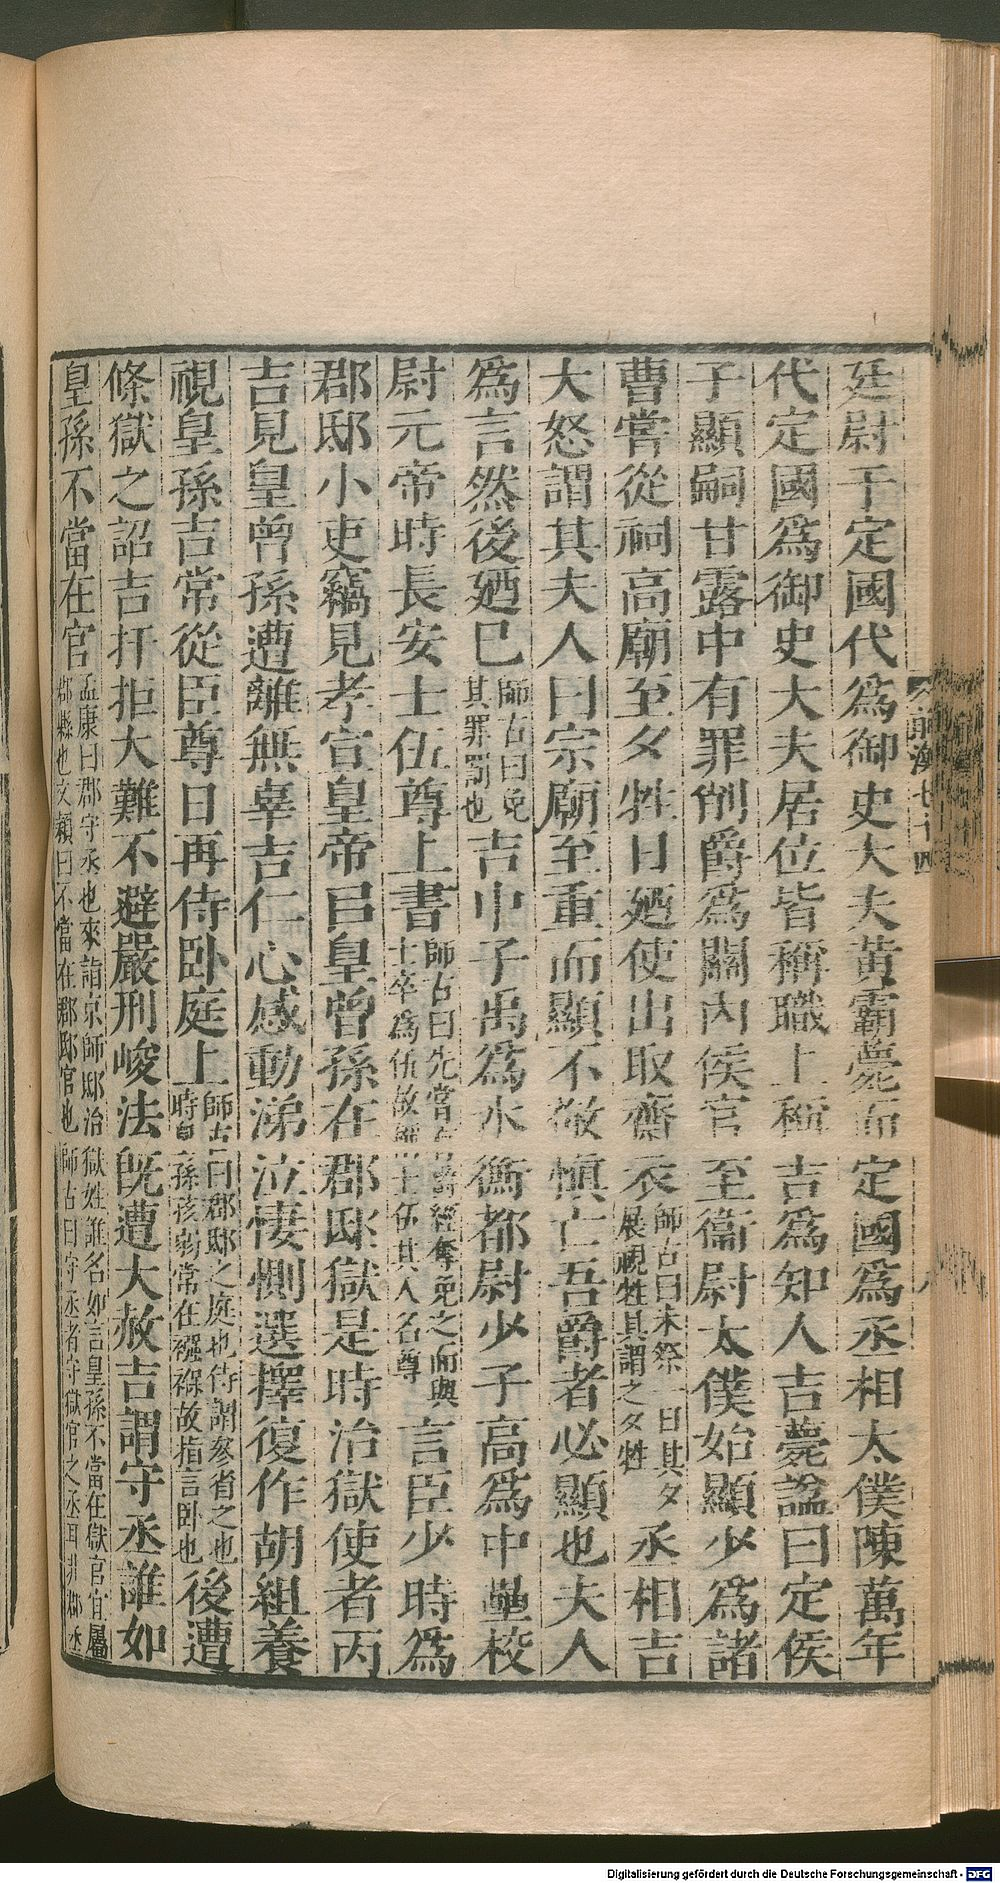 廷尉于定國代爲御史大夫黃霸薨而定國爲丞相太僕陳萬年
代定國爲御史大夫居位皆稱職上稱吉爲知人吉薨諡曰定侯
子顯嗣甘露中有罪削爵爲關內侯官至衞尉太僕始顯少爲諸
曹嘗從祠高廟至夕牲日廼使出取齋衣師古曰未祭一日其夕展視牲具謂之夕牲丞相吉
大怒謂其夫人曰宗廟至重而顯不敬慎亡吾爵者必顯也夫人
爲言然後廼已師古曰免其罪罰也吉中子禹爲水衡都尉少子高爲中壘校
尉元帝時長安士伍尊上書師古曰先嘗有爵經奪免之而與士卒爲伍故稱士伍其人名尊言臣少時爲
郡邸小吏竊見孝宣皇帝㠯皇曾孫在郡邸獄是時治獄使者丙
吉見皇曾孫遭離無辜吉仁心感動涕泣悽惻選擇復作胡組養
視皇孫吉常從臣尊日再侍臥庭上師古曰郡邸之庭也侍謂參省之也時皇孫孩弱常在襁褓故指言臥也後遭
條獄之詔吉扞拒大難不避嚴刑峻法既遭大赦吉謂守丞誰如
皇孫不當在官孟康曰郡守丞也來詣京師邸治獄姓誰名如言皇孫不當在獄官宜屬郡縣也文穎曰不當在郡邸官也師古曰守丞者守獄官之丞耳非郡丞
前漢七十四
八
Digitalisierung gefördert durch die Deutsche Forschungsgemeinschaft - DFG